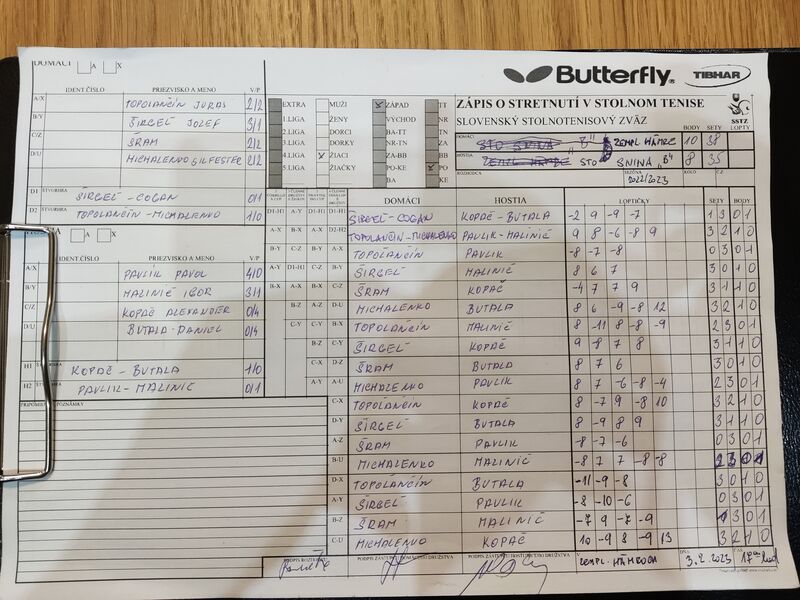 DOMÁCI A X
Butterfly TIBHAR
IDENT.ČÍSLO PRIEZVISKO A MENO V/P
A/X TOPOLANČÍN JURAS 2/2
B/Y ŠIRGEĽ JOZEF 3/1
C/Z ŠRAM 2/2
D/U MICHALENKO SILFESTER 2/2
EXTRA MUŽI ZÁPAD TT
1.LIGA ŽENY VÝCHOD NR
2.LIGA DORCI BA-TT TN
3.LIGA DORKY NR-TN ZA
4.LIGA ŽIACI ZA-BB BB
5.LIGA ŽIAČKY PO-KE PO
BA KE
ZÁPIS O STRETNUTÍ V STOLNOM TENISE
SLOVENSKÝ STOLNOTENISOVÝ ZVÄZ
SSTZ
BODY SETY LOPTY
DOMÁCI STO SNINA "B" ZEMPL HÁMRE 10 38
HOSTIA ZEMPL HÁMRE STO SNINA "B" 8 35
ROZHODCA SEZÓNA 2022/2023 KOLO Č.Z
D1 ŠTVORHRA ŠIRGEĽ - COGAN 0/1
D2 ŠTVORHRA TOPOLANČÍN - MICHALENKO 1/0
HOSTIA A X
IDENT.ČÍSLO PRIEZVISKO A MENO V/P
A/X PAVLIK PAVOL 4/0
B/Y MALINIČ IGOR 3/1
C/Z KOPAČ ALEXANDER 0/4
D/U BUTALA DANIEL 0/4
H1 KOPAČ - BUTALA 1/0
H2 PAVLIK - MALINIČ 0/1
PRIPOMIENKY POZNÁMKY
DOMÁCI HOSTIA LOPTIČKY SETY BODY
D1-H1 A-Y A-X D1-H1 ŠIRGEĽ - COGAN KOPAČ - BUTALA -2 9 -9 -7 1 3 0 1
TOPOLANČÍN - MICHALENKO PAVLIK - MALINIČ 9 8 -6 -8 9 3 2 1 0
TOPOLANČÍN PAVLIK -8 -7 -8 0 3 0 1
ŠIRGEĽ MALINIČ 8 6 7 3 0 1 0
ŠRAM KOPAČ -4 7 7 9 3 1 1 0
MICHALENKO BUTALA 8 6 -9 -8 12 3 2 1 0
TOPOLANČÍN MALINIČ 8 -11 8 -8 -9 2 3 0 1
ŠIRGEĽ KOPAČ 9 -8 7 8 3 1 1 0
ŠRAM BUTALA 8 7 6 3 0 1 0
A-Y A-U MICHALENKO PAVLIK 8 7 -6 -8 -4 2 3 0 1
C-X TOPOLANČÍN KOPAČ 8 -7 9 -8 10 3 2 1 0
D-Y ŠIRGEĽ BUTALA 8 -9 8 9 3 1 1 0
A-Z ŠRAM PAVLIK -8 -7 -6 0 3 0 1
B-U MICHALENKO MALINIČ -8 7 7 -8 -8 2 3 0 1
D-X TOPOLANČÍN BUTALA -11 -9 -8 3 0 1 0
A-Y ŠIRGEĽ PAVLIK -8 -10 -6 0 3 0 1
B-Z ŠRAM MALINIČ -7 9 -7 -9 1 3 0 1
C-U MICHALENKO KOPAČ 10 -9 8 -9 13 3 2 1 0
PODPIS ROZHODCU PODPIS ZÁSTUPCU DOMÁCEHO DRUŽSTVA PODPIS ZÁSTUPCU HOSTUJÚCEHO DRUŽSTVA V ZEMPL. HÁMROCH DŇA 3.2.2023 ČAS 17 hod